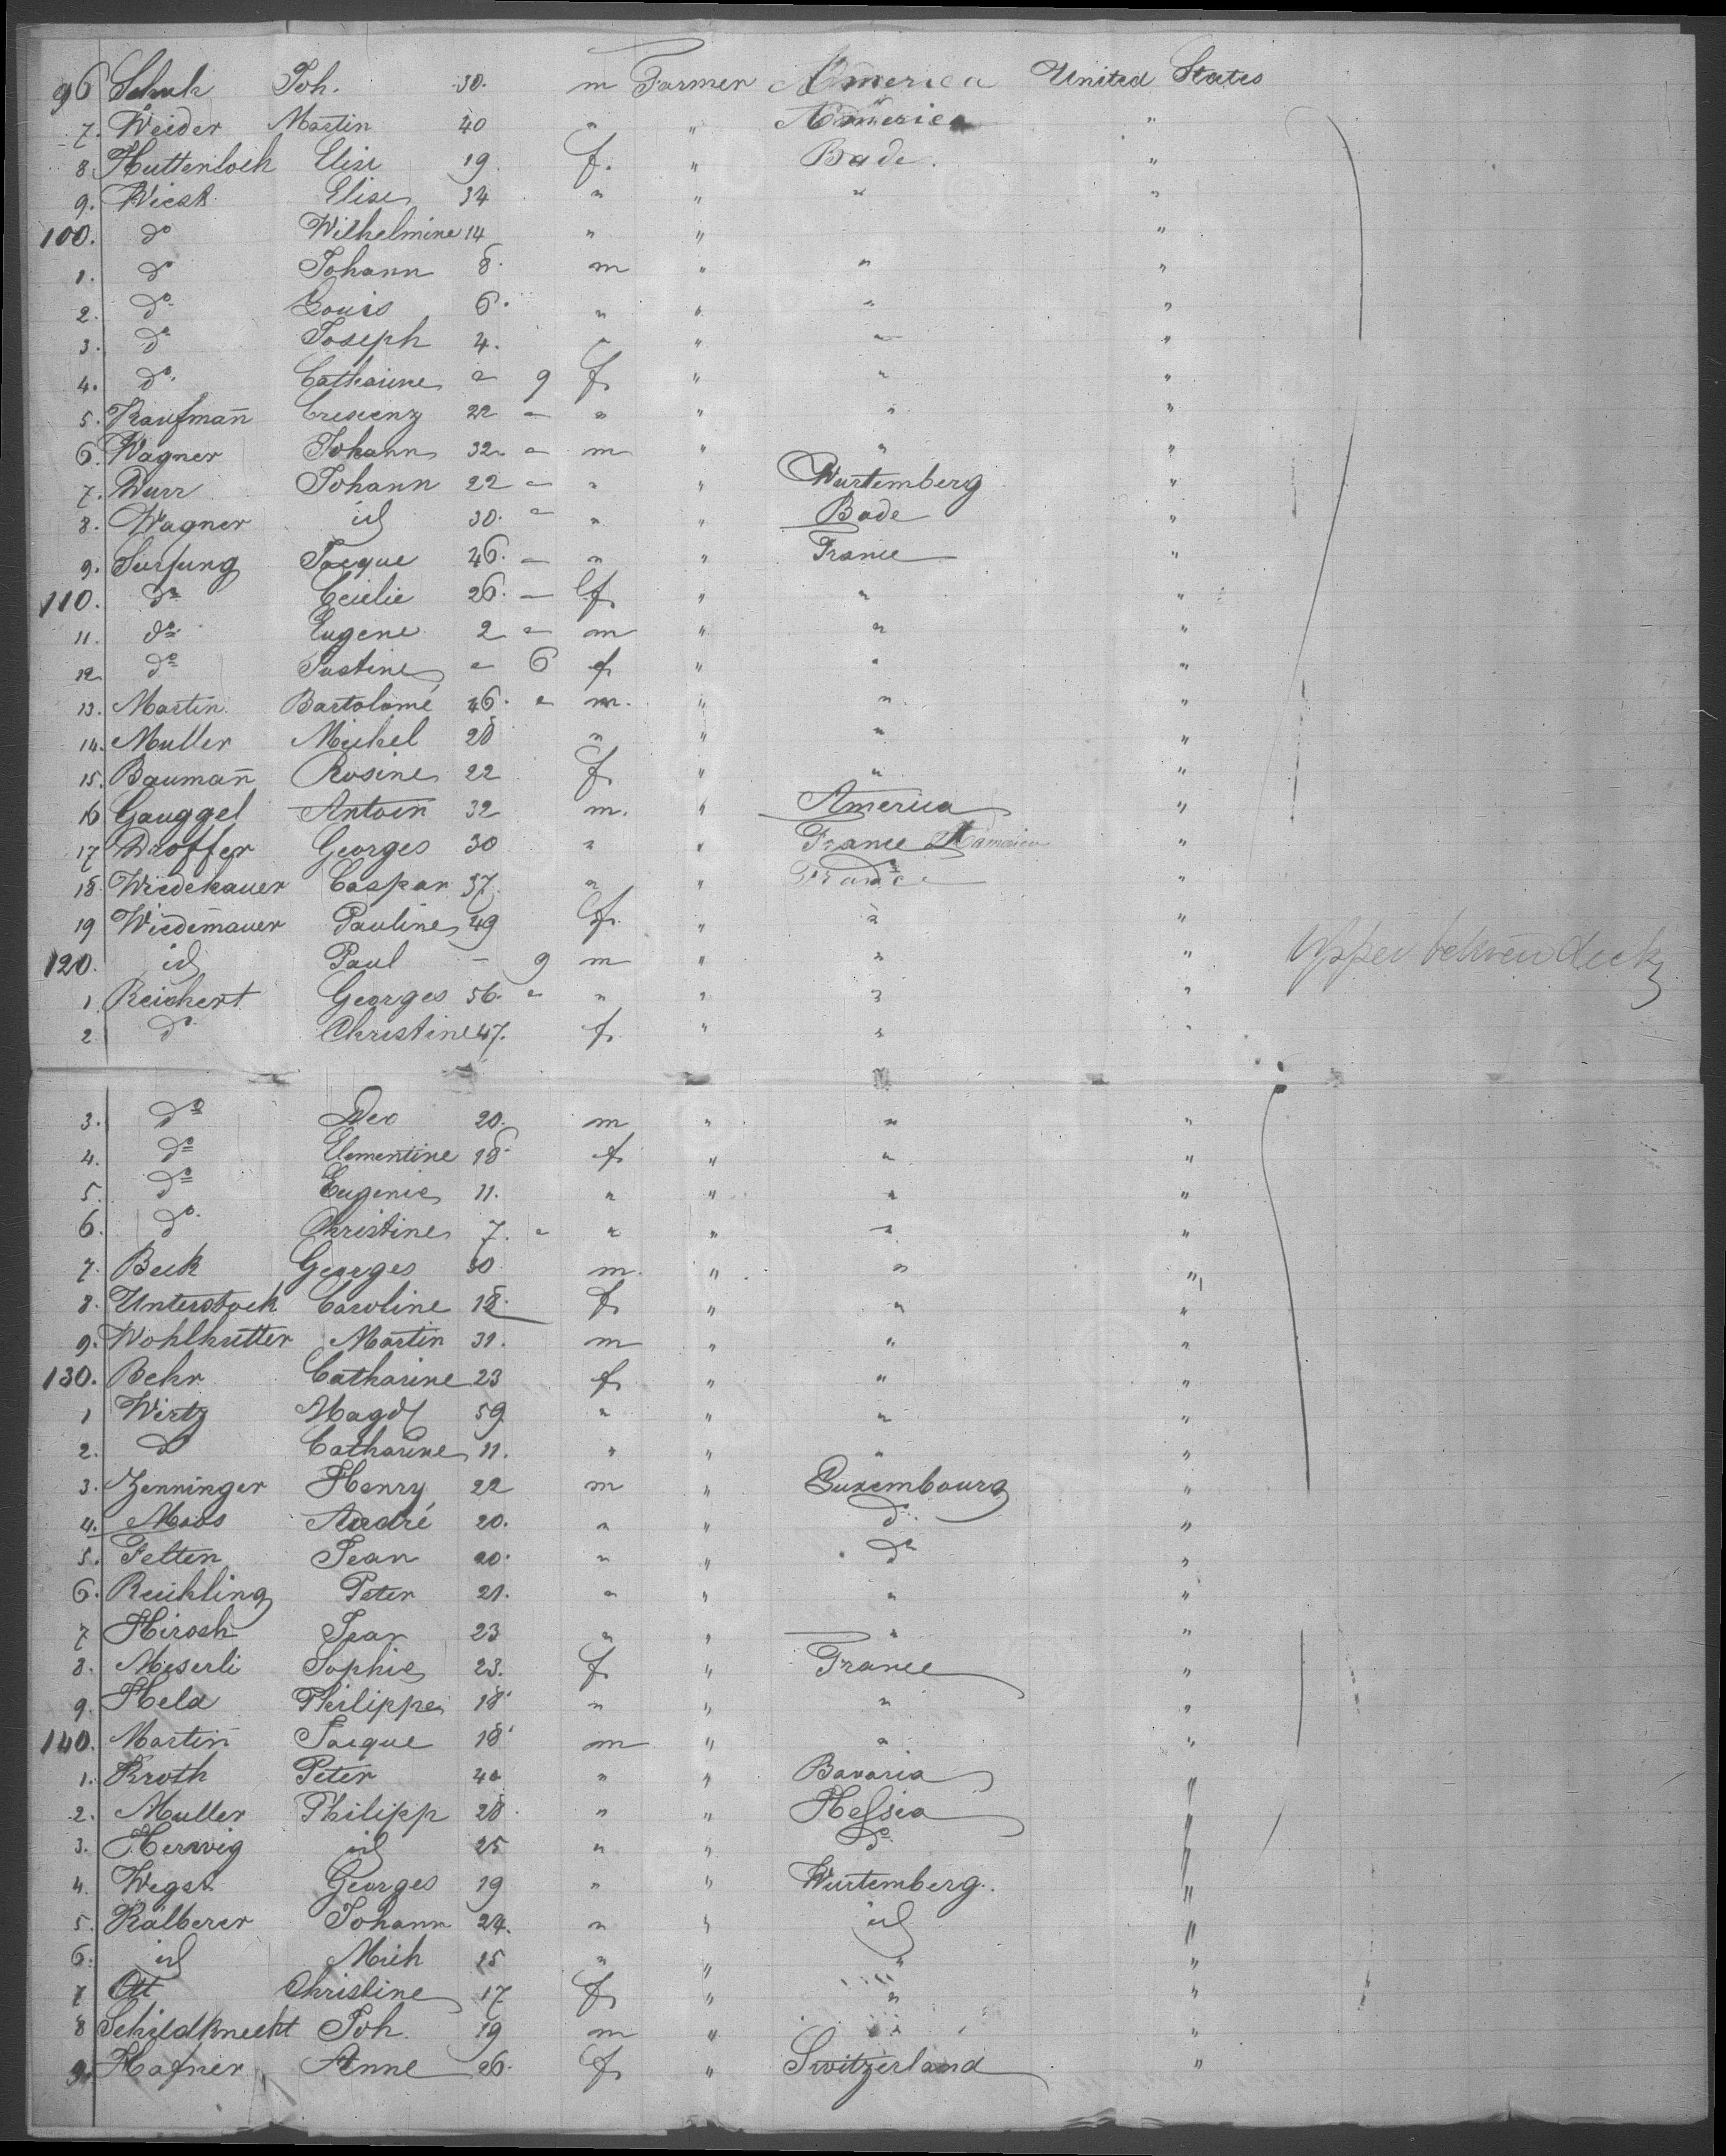 96 Schuk Joh. 30. m Farmer America United States
7. Weider Martin 40 " " America "
8. Huttenloch Elise 19. f. " Bade. "
9. Wiest Elise 34 " " " "
100. do Wilhelmine 14 " " "
1. do Johann 8. m " " "
2. do Louis 6. " " " "
3. do Joseph 4. " " " "
4. do Catharine " 9 f " " "
5. Kaufmañ Crescenz 22 " " " " "
6. Wagner Johann 32 " m " " "
7. Wurr Johann 22 " " " Wurtemberg "
8. Wagner id 30. " " " Bade "
9. Surfung Jacque 46. " " " France "
110. do Cecilie 26. " f " " "
11. do Eugene 2 " m " " "
12 do Justine " 6 f " " "
13. Martin Bartolomé 46. " m. " " "
14. Muller Michel 28 " " " "
15. Baumañ Rosine 22 f " " "
16 Gauggel Antoin 32 m. " America "
17 Georges 30 " " France "
18. Wiedehauer Caspar 37. " " do "
19 Wiedemauer Pauline 49 f. " " "
120. id Paul - 9 m " " "
Upper betwen deck
1 Reichert Georges 56. " " " " "
2 do Christine 47. f " " "
3. do 20. m " " "
4. do Clementine 18. f " " "
5. do Eugenie 11. " " " "
6. do Christine 7. " " " " "
7. Beck Georges 30 m. " " "
8. Unterstock Caroline 18. f " " "
9. Wohlhutter Martin 31. m " " "
130. Behr Catharine 23 f " " "
1 Wirtz Magd 59 " " " "
2. do Catharine 11. " " " "
3. Zenninger Henry 22 m " Luxembourg "
4. Moos André 20. " " do "
5. Felten Jean 20. " " do "
6. Reickling Peter 21. " " " "
7 Hirosh Jean 23 " " " "
8. Meserli Sophie 23. f " France "
9. Hela Philippe 18. " " " "
140. Martin Jacque 18. m " " "
1. Kroth Peter 40 " " Bavaria "
2. Muller Philipp 28. " " Hessia "
3. Herwig id 25 " " do "
4. Wegst Georges 19 " " Wurtemberg. "
5. Kalberer Johann 24. " " id "
6. id Mich 15 " " " "
7 Ott Christine 17 f " " "
8 Schildknecht Joh. 19 m " " "
9. Hafner Anne 26. f " Switzerland "